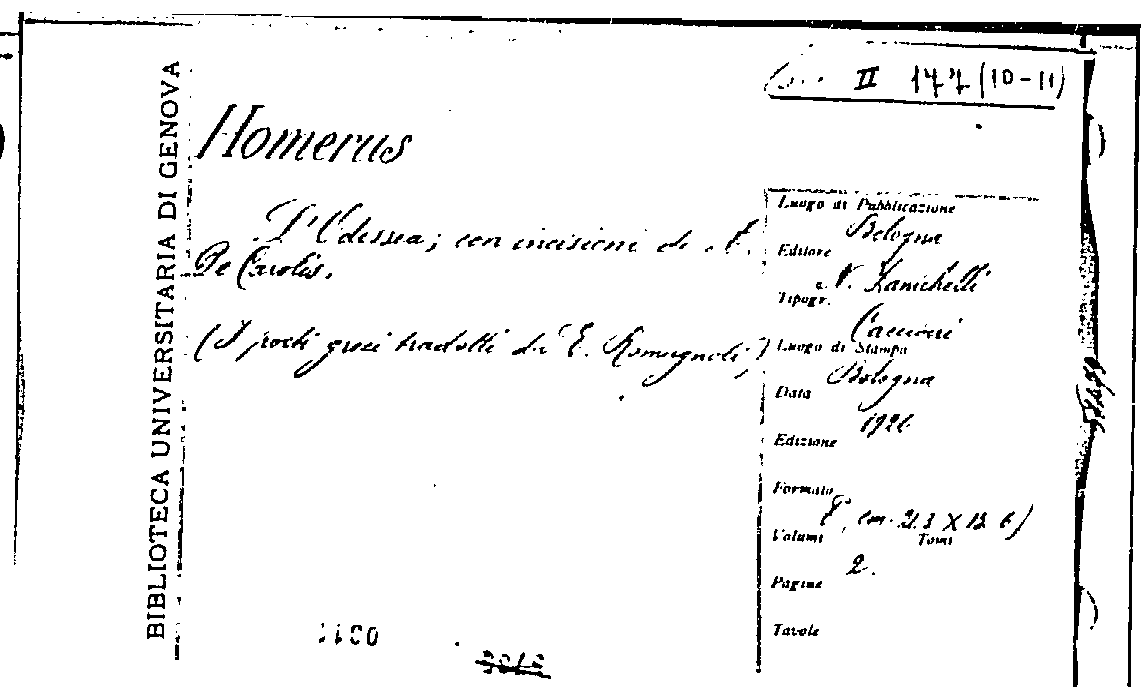 BIBLIOTECA UNIVERSITARIA DI GENOVA
II 147 (10-11)
Homerus
L'Odissea; con incisioni di A.
De Carolis.
(I poeti greci tradotti da E. Romagnoli)
Luogo di Pubblicazione
Bologna
Editore
N. Zanichelli
Tipogr.
Cacciari
Luogo di Stampa
Bologna
Data
Edizione
Formato
8°, cm.
Volumi Tomi
2.
Pagine
Tavole